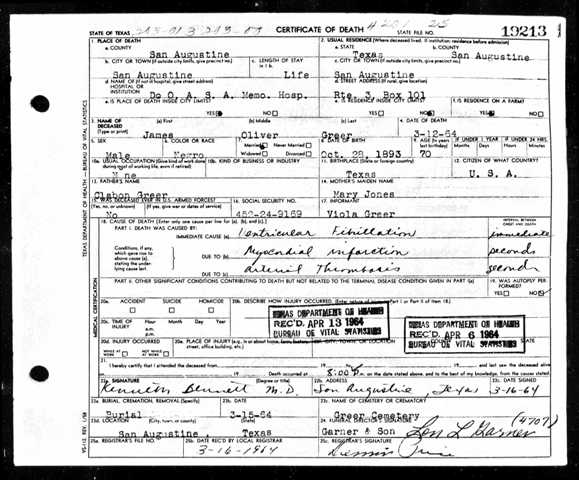 STATE OF TEXAS CERTIFICATE OF DEATH STATE FILE NO. 19213
1. PLACE OF DEATH 2. USUAL RESIDENCE (Where deceased lived. If institution: residence before admission)
a. COUNTY a. STATE b. COUNTY
San Augustine Texas San Augustine
b. CITY OR TOWN (If outside city limits, give precinct no.) c. LENGTH OF STAY in 1 b. c. CITY OR TOWN (If outside city limits, give precinct no.)
San Augustine Life San Augustine
d. NAME OF (If not in hospital, give street address) HOSPITAL OR INSTITUTION d. STREET ADDRESS (If rural, give location)
Do O. A. S. A. Memo. Hosp. Rte. 3, Box 101
e. IS PLACE OF DEATH INSIDE CITY LIMITS? e. IS RESIDENCE INSIDE CITY LIMITS? f. IS RESIDENCE ON A FARM?
YES NO YES NO YES NO
3. NAME OF DECEASED (Type or print) (a) First (b) Middle (c) Last 4. DATE OF DEATH
James Oliver Greer 3-12-64
5. SEX 6. COLOR OR RACE 7. Married Never Married 8. DATE OF BIRTH 9. AGE (In years last birthday) IF UNDER 1 YEAR IF UNDER 24 HRS.
Widowed Divorced Months Days Hours Minutes
Male Negro Oct. 28, 1893 70
10a. USUAL OCCUPATION (Give kind of work done during most of working life, even if retired) 10b. KIND OF BUSINESS OR INDUSTRY 11. BIRTHPLACE (State or foreign country) 12. CITIZEN OF WHAT COUNTRY?
Texas U. S. A.
13. FATHER'S NAME 14. MOTHER'S MAIDEN NAME
Clabon Greer Mary Jones
15. WAS DECEASED EVER IN U.S. ARMED FORCES? 16. SOCIAL SECURITY NO. 17. INFORMANT
(Yes, no, or unknown) (If yes, give war or dates of service)
No 452-24-9169 Viola Greer
18. CAUSE OF DEATH [Enter only one cause per line for (a), (b), and (c).] INTERVAL BETWEEN ONSET AND DEATH
PART I. DEATH WAS CAUSED BY:
IMMEDIATE CAUSE (a) Ventricular Fibrillation immediate
Conditions, if any, which gave rise to above cause (a), stating the underlying cause last.
DUE TO (b) Myocardial infarction seconds
DUE TO (c) arterial Thrombosis seconds
PART II. OTHER SIGNIFICANT CONDITIONS CONTRIBUTING TO DEATH BUT NOT RELATED TO THE TERMINAL DISEASE CONDITION GIVEN IN PART I(a) 19. WAS AUTOPSY PERFORMED?
YES NO
20a. ACCIDENT SUICIDE HOMICIDE 20b. DESCRIBE HOW INJURY OCCURRED.
20c. TIME OF INJURY Hour Month Day Year
a.m.
p.m.
TEXAS DEPARTMENT OF HEALTH
REC'D. APR 13 1964
BUREAU OF VITAL STATISTICS
TEXAS DEPARTMENT OF HEALTH
REC'D. APR 6 1964
BUREAU OF VITAL STATISTICS
20d. INJURY OCCURRED 20e. PLACE OF INJURY
WHILE AT WORK NOT WHILE AT WORK
21. I hereby certify that I attended the deceased from
Death occurred at 8:00 P. m. on the date stated above, and to the best of my knowledge, from the causes stated
22a. SIGNATURE (Degree or title) 22b. ADDRESS 22c. DATE SIGNED
Kenneth Bennett M.D. San Augustine, Texas 3-16-64
23a. BURIAL, CREMATION, REMOVAL (Specify) 23b. DATE 23c. NAME OF CEMETERY OR CREMATORY
Burial 3-15-64 Greer Cemetery
23d. LOCATION (City, town, or county) (State) 24. FUNERAL DIRECTOR'S SIGNATURE (4707)
San Augustine, Texas Garner & Son Lon L Garner
25a. REGISTRAR'S FILE NO. 25b. DATE REC'D BY LOCAL REGISTRAR 25c. REGISTRAR'S SIGNATURE
3-16-1964
TEXAS DEPARTMENT OF HEALTH — BUREAU OF VITAL STATISTICS
MEDICAL CERTIFICATION